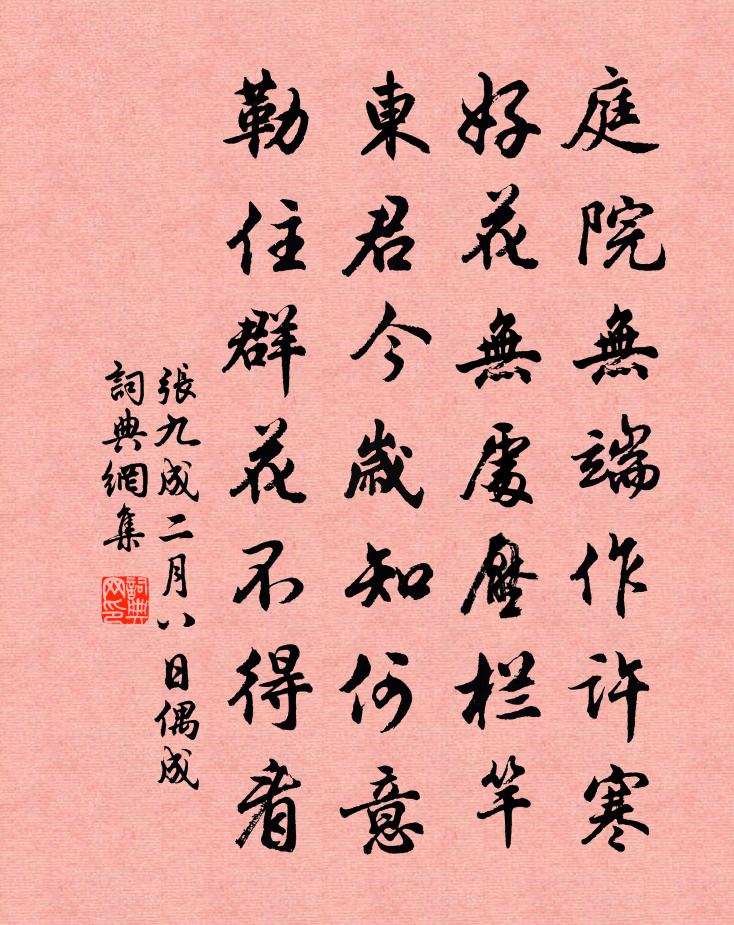 庭院無端作許寒
好花無處壓栏竿
東君今歲知何意
勒住群花不得看
張九成二月八日偶成
詞典網集
詞典網印